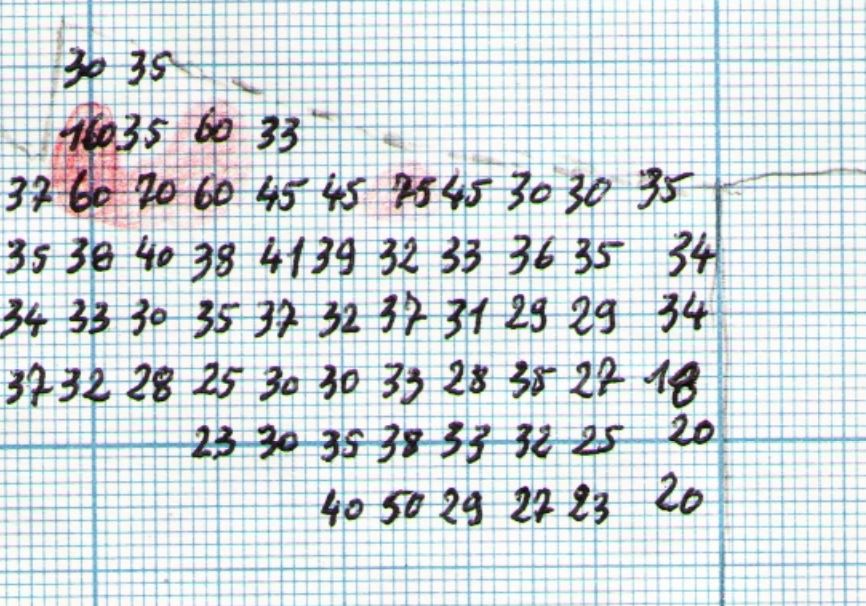 30 35
160 35 60 33
37 60 70 60 45 45 75 45 30 30 35
35 36 40 38 41 39 32 33 36 35 34
34 33 30 35 37 32 37 31 29 29 34
37 32 28 25 30 30 33 28 38 27 18
23 30 35 38 33 32 25 20
40 50 29 27 23 20